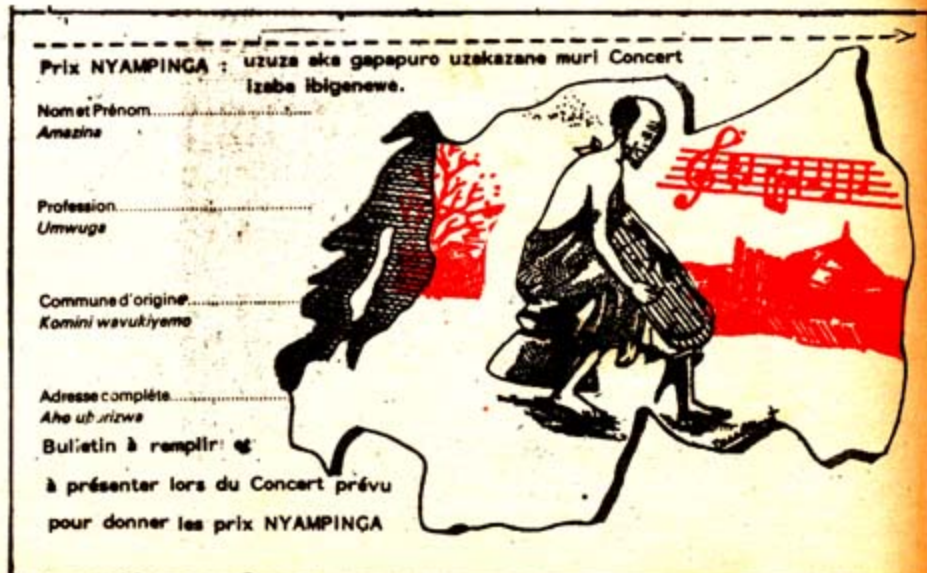 Prix NYAMPINGA : uzuza aka gapapuro uzakazane muri Concert
izaba ibigenewe.
Nom et Prénom
Amazina
Profession
Umwuga
Commune d'origine
Komini wavukiyemo
Adresse complète
Aho uburizwa
Bulletin à remplir et
à présenter lors du Concert prévu
pour donner les prix NYAMPINGA